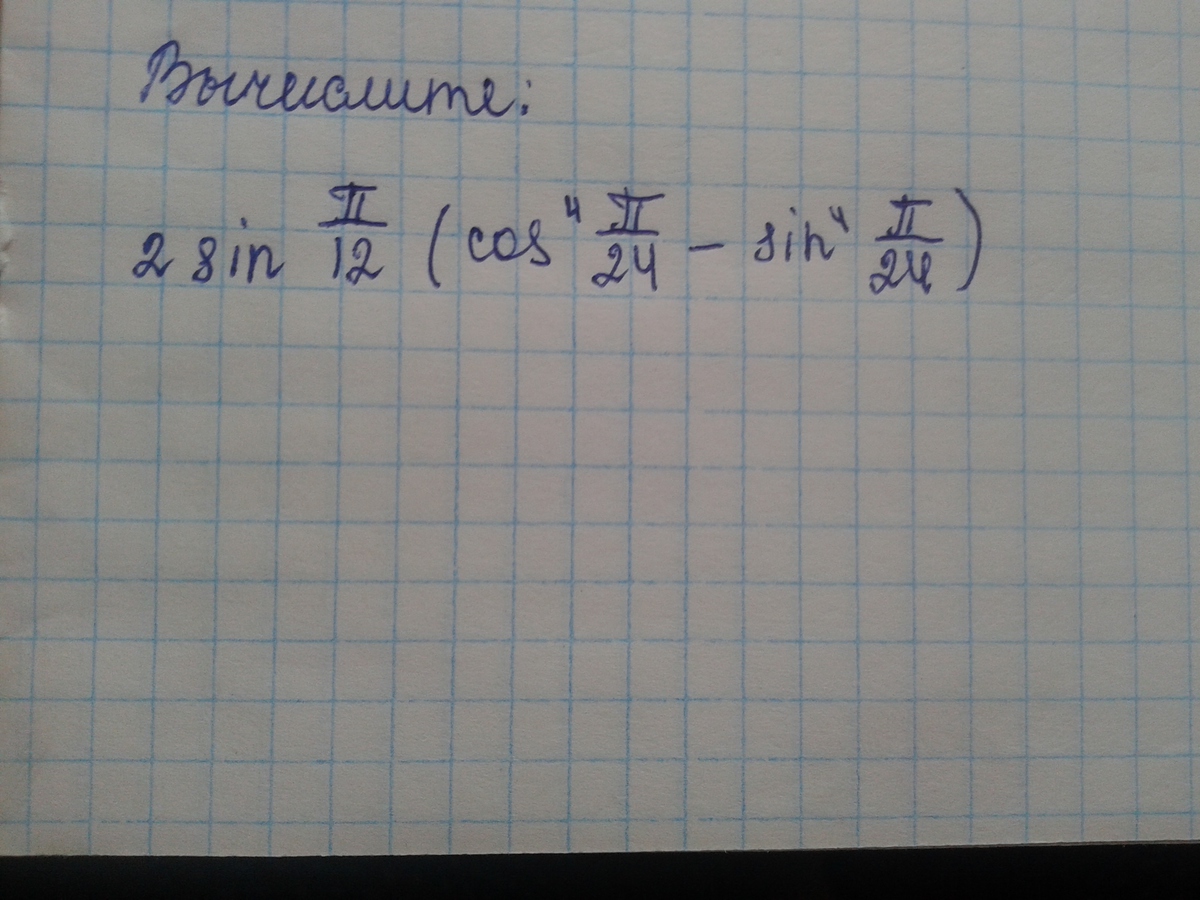 Вычислите:
2 sin π/12 (cos⁴ π/24 − sin⁴ π/24)